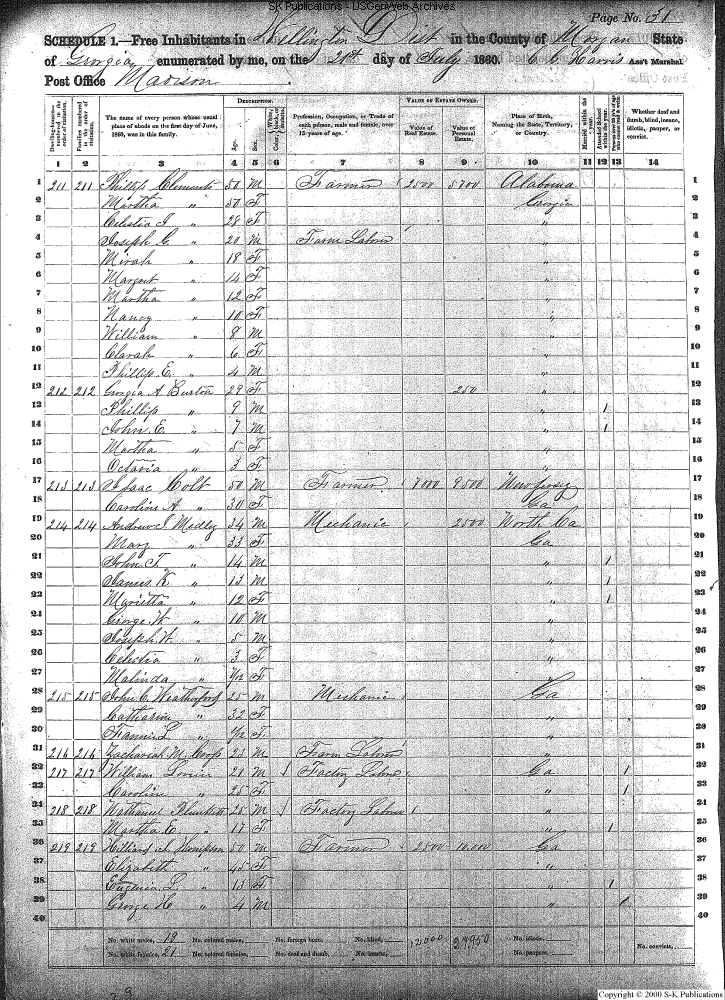 SK Publications - USGenWeb Archives
Page No. 31
SCHEDULE 1.—Free Inhabitants in Wellington Dist in the County of Morgan State
of Georgia enumerated by me, on the 20st day of July 1860. C C Harris Ass't Marshal
Post Office Madison
DESCRIPTION. VALUE OF ESTATE OWNED.
Dwelling-houses—numbered in the order of visitation.
Families numbered in the order of visitation.
The name of every person whose usual place of abode on the first day of June, 1860, was in this family.
Age.
Sex.
White, black, or mulatto.
Profession, Occupation, or Trade of each person, male and female, over 15 years of age.
Value of Real Estate.
Value of Personal Estate.
Place of Birth, Naming the State, Territory, or Country.
Married within the year.
Attended School within the year.
Whether deaf and dumb, blind, insane, idiotic, pauper, or convict.
1 2 3 4 5 6 7 8 9 10 11 12 13 14
1 211 211 Phillip Clements 50 M Farmer 2500 5700 Alabama 1
2 Martha " 50 F Georgia 2
3 Celistia J " 28 F " 3
4 Joseph G. " 20 M Farm Labor " 4
5 Mirah " 18 F " 5
6 Margret " 14 F " 6
7 Martha " 12 F " 7
8 Nancy " 10 F " 8
9 William " 8 M " 9
10 Clarah " 6 F " 10
11 Phillip E. " 4 M " 11
12 212 212 Georgia A Burton 29 F 250 " 12
13 Phillip " 9 M " 1 13
14 John E. " 7 M " 1 14
15 Martha " 5 F " 15
16 Octavia " 3 F " 16
17 213 213 Isaac Colt 50 M Farmer 7000 9500 New Jersey 17
18 Caroline A " 30 F Ga 18
19 214 214 Andrew J Medley 34 M Mechanic 2500 North Ca 19
20 Mary " 33 F Ga 20
21 John T. " 14 M " 1 21
22 James K " 13 M " 1 22
23 Marietta " 12 F " 1 23
24 George W " 10 M " 24
25 Joseph W. " 5 M " 25
26 Celistia " 3 F " 26
27 Malinda " F " 27
28 215 215 John C Weatherford 25 M Mechanic Ga 28
29 Catharine " 32 F " 29
30 Fannie L " F " 30
31 216 216 Zachariah M. 23 M Farm Labor " 31
32 217 217 William 21 M Factory Labor Ga 1 32
33 Caroline " 25 F " 1 33
34 218 218 Nathaniel Plunkett 25 M Factory Labor " 34
35 Martha E " 17 F " 1 35
36 219 219 Hilliard J Thompson 50 M Farmer 2500 10,000 Ga 36
37 Elizabeth " 45 F " 37
38 Eugenia L. " 13 F " 1 38
39 George H " 4 M " 1 39
40 40
No. white males, 19 No. colored males, No. foreign born, No. blind, 12000 27950 No. idiotic, No. convicts,
No. white females, 21 No. colored females, No. deaf and dumb, No. insane, No. paupers,
Copyright © 2000 S-K Publications